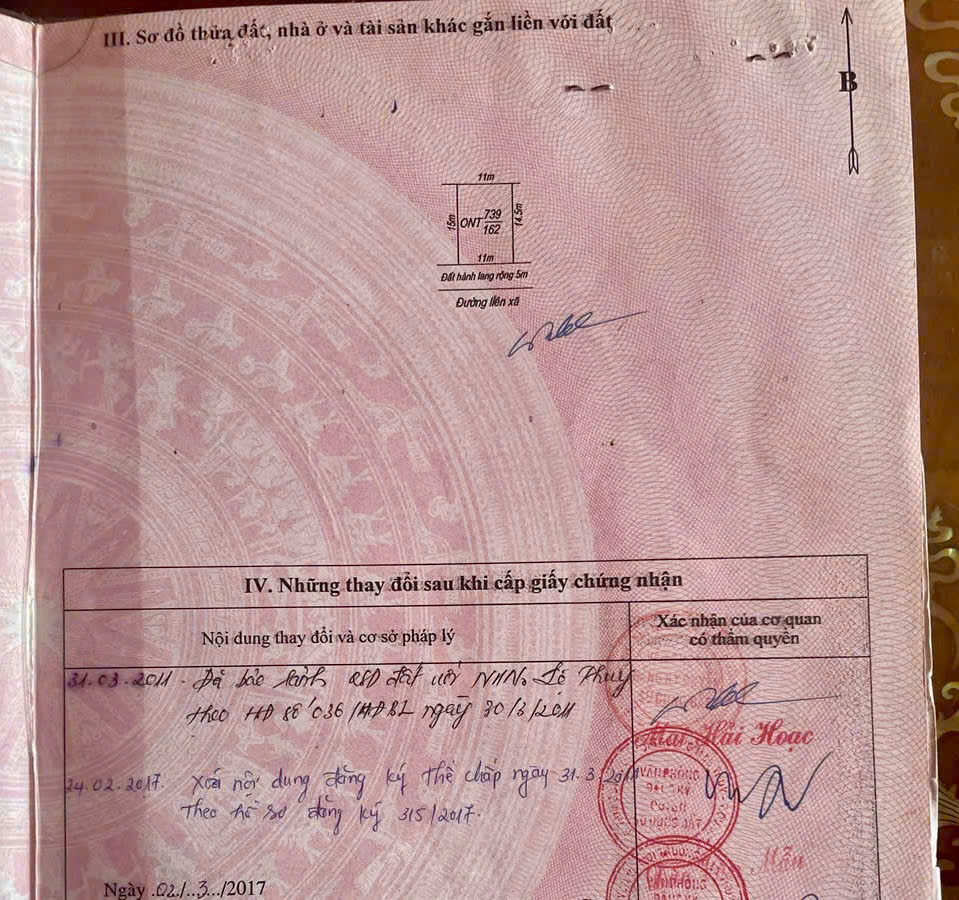 III. Sơ đồ thửa đất, nhà ở và tài sản khác gắn liền với đất
B
11m
15m
ONT 739/162
14.5m
11m
Đất hành lang rộng 5m
Đường liên xã
IV. Những thay đổi sau khi cấp giấy chứng nhận
Nội dung thay đổi và cơ sở pháp lý
Xác nhận của cơ quan có thẩm quyền
31.03.2011. Đã bảo lãnh QSD đất với NHNo Lệ Thuỷ
theo HĐ số 036/HĐBL ngày 30/3/2011
Mai Hải Hoạc
24.02.2017. Xoá nội dung đăng ký thế chấp ngày 31.3/2011
Theo hồ sơ đăng ký 315/2017.
VĂN PHÒNG
ĐĂNG KÝ
Mẫn
Ngày .02./..3.../2017
VĂN PHÒNG